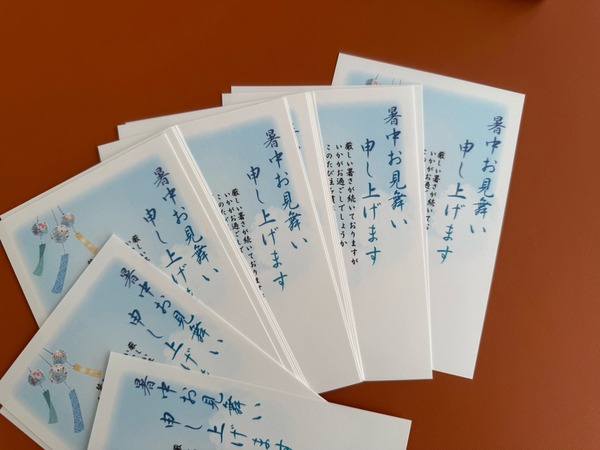 暑中お見舞い
申し上げます
厳しい暑さが続いてお
暑中お見舞い
申し上げます
厳しい暑さが続いておりますが
いかがお過ごしでしょうか
このたび
暑中お見舞い
申し上げます
厳しい暑さが続いております
いかがお過ごしで
このたび
暑中お見舞い
申し上げます
厳し
暑中お見舞い
申し上げ
暑中お見舞い
申し上げます